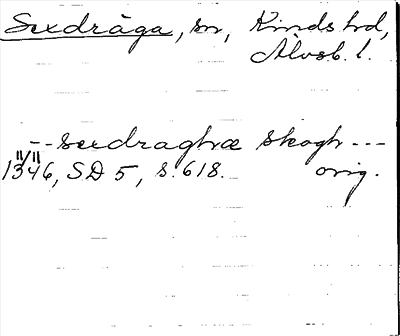 Sexdräga, sn, Kinds hd,
Älvsb. l.
--sexdraghræ skogh ---
11/11
1346, SD 5, s. 618. orig.